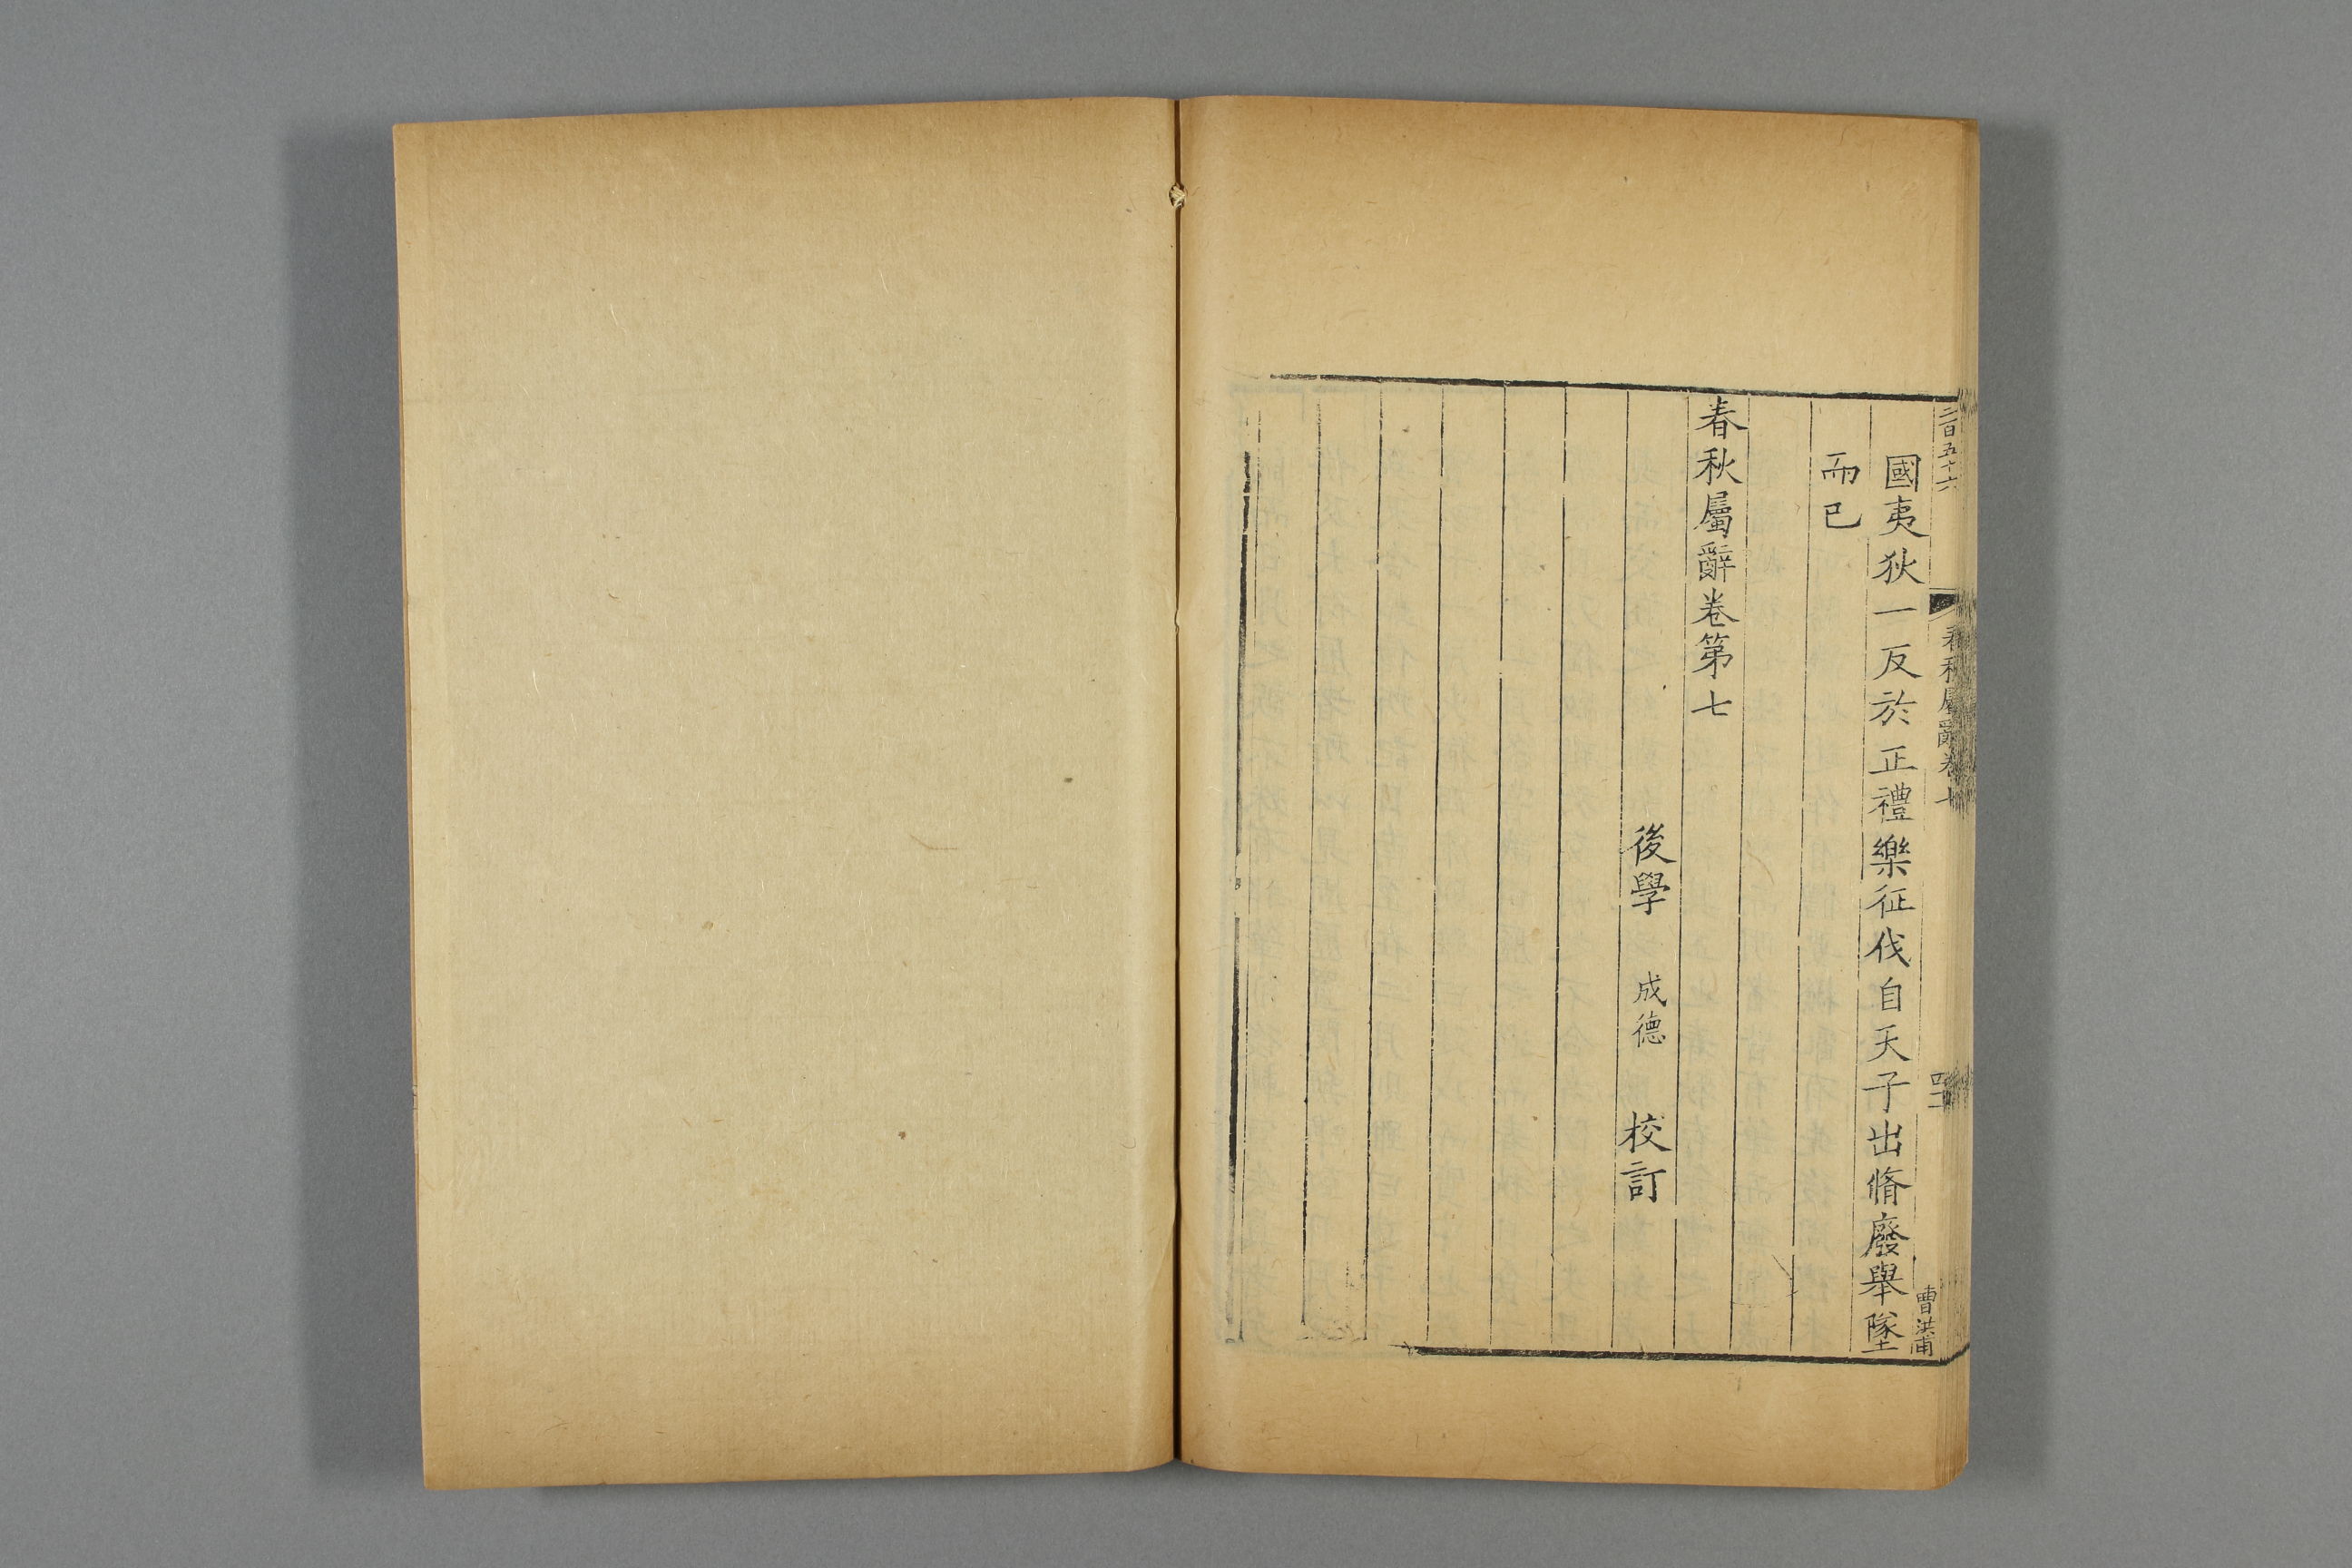 二百五十六
春秋屬辭卷七
四二
曹洪甫
國夷狄一反於正禮樂征伐自天子出脩廢舉墜
而已
春秋屬辭卷第七
後學 成德 校訂